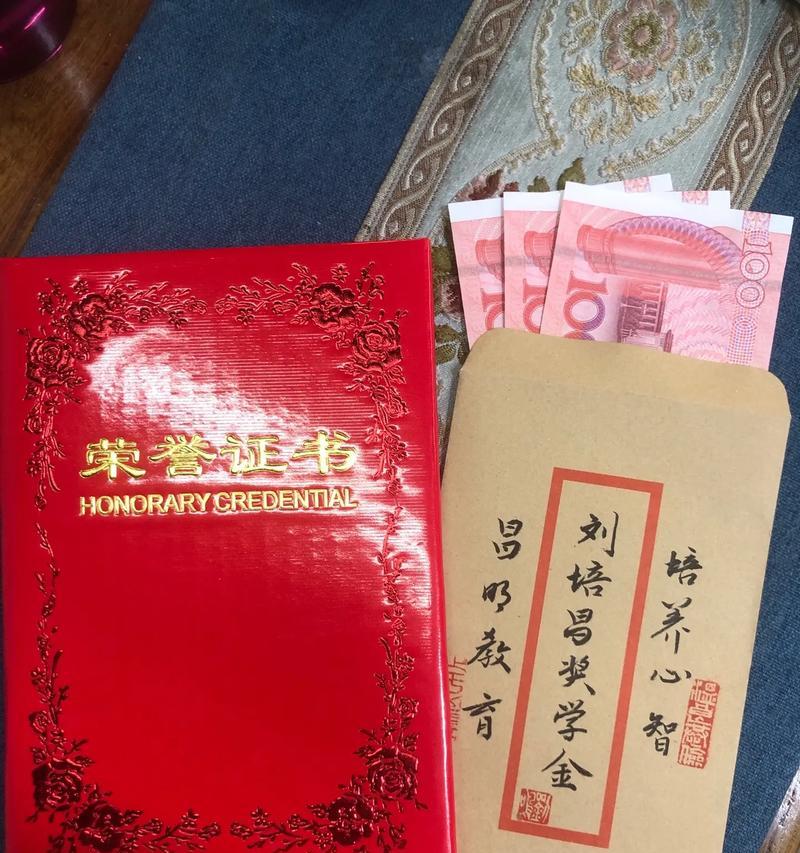 荣誉证书
HONORARY CREDENTIAL
100
100
培养心智
刘培昌奖学金
昌明教育